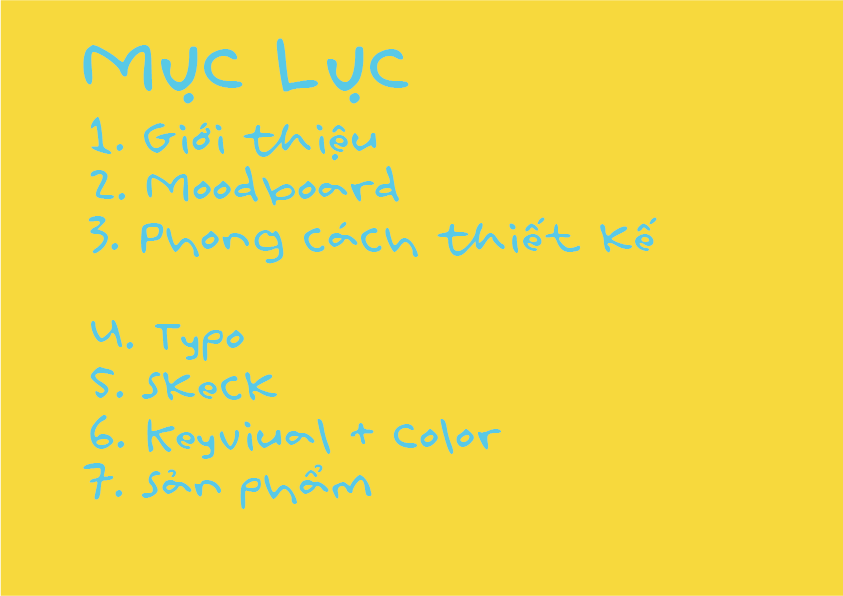 Mục Lục
1. Giới thiệu
2. Moodboard
3. Phong cách thiết kế
4. Typo
5. Skeck
6. Keyviual + Color
7. Sản phẩm